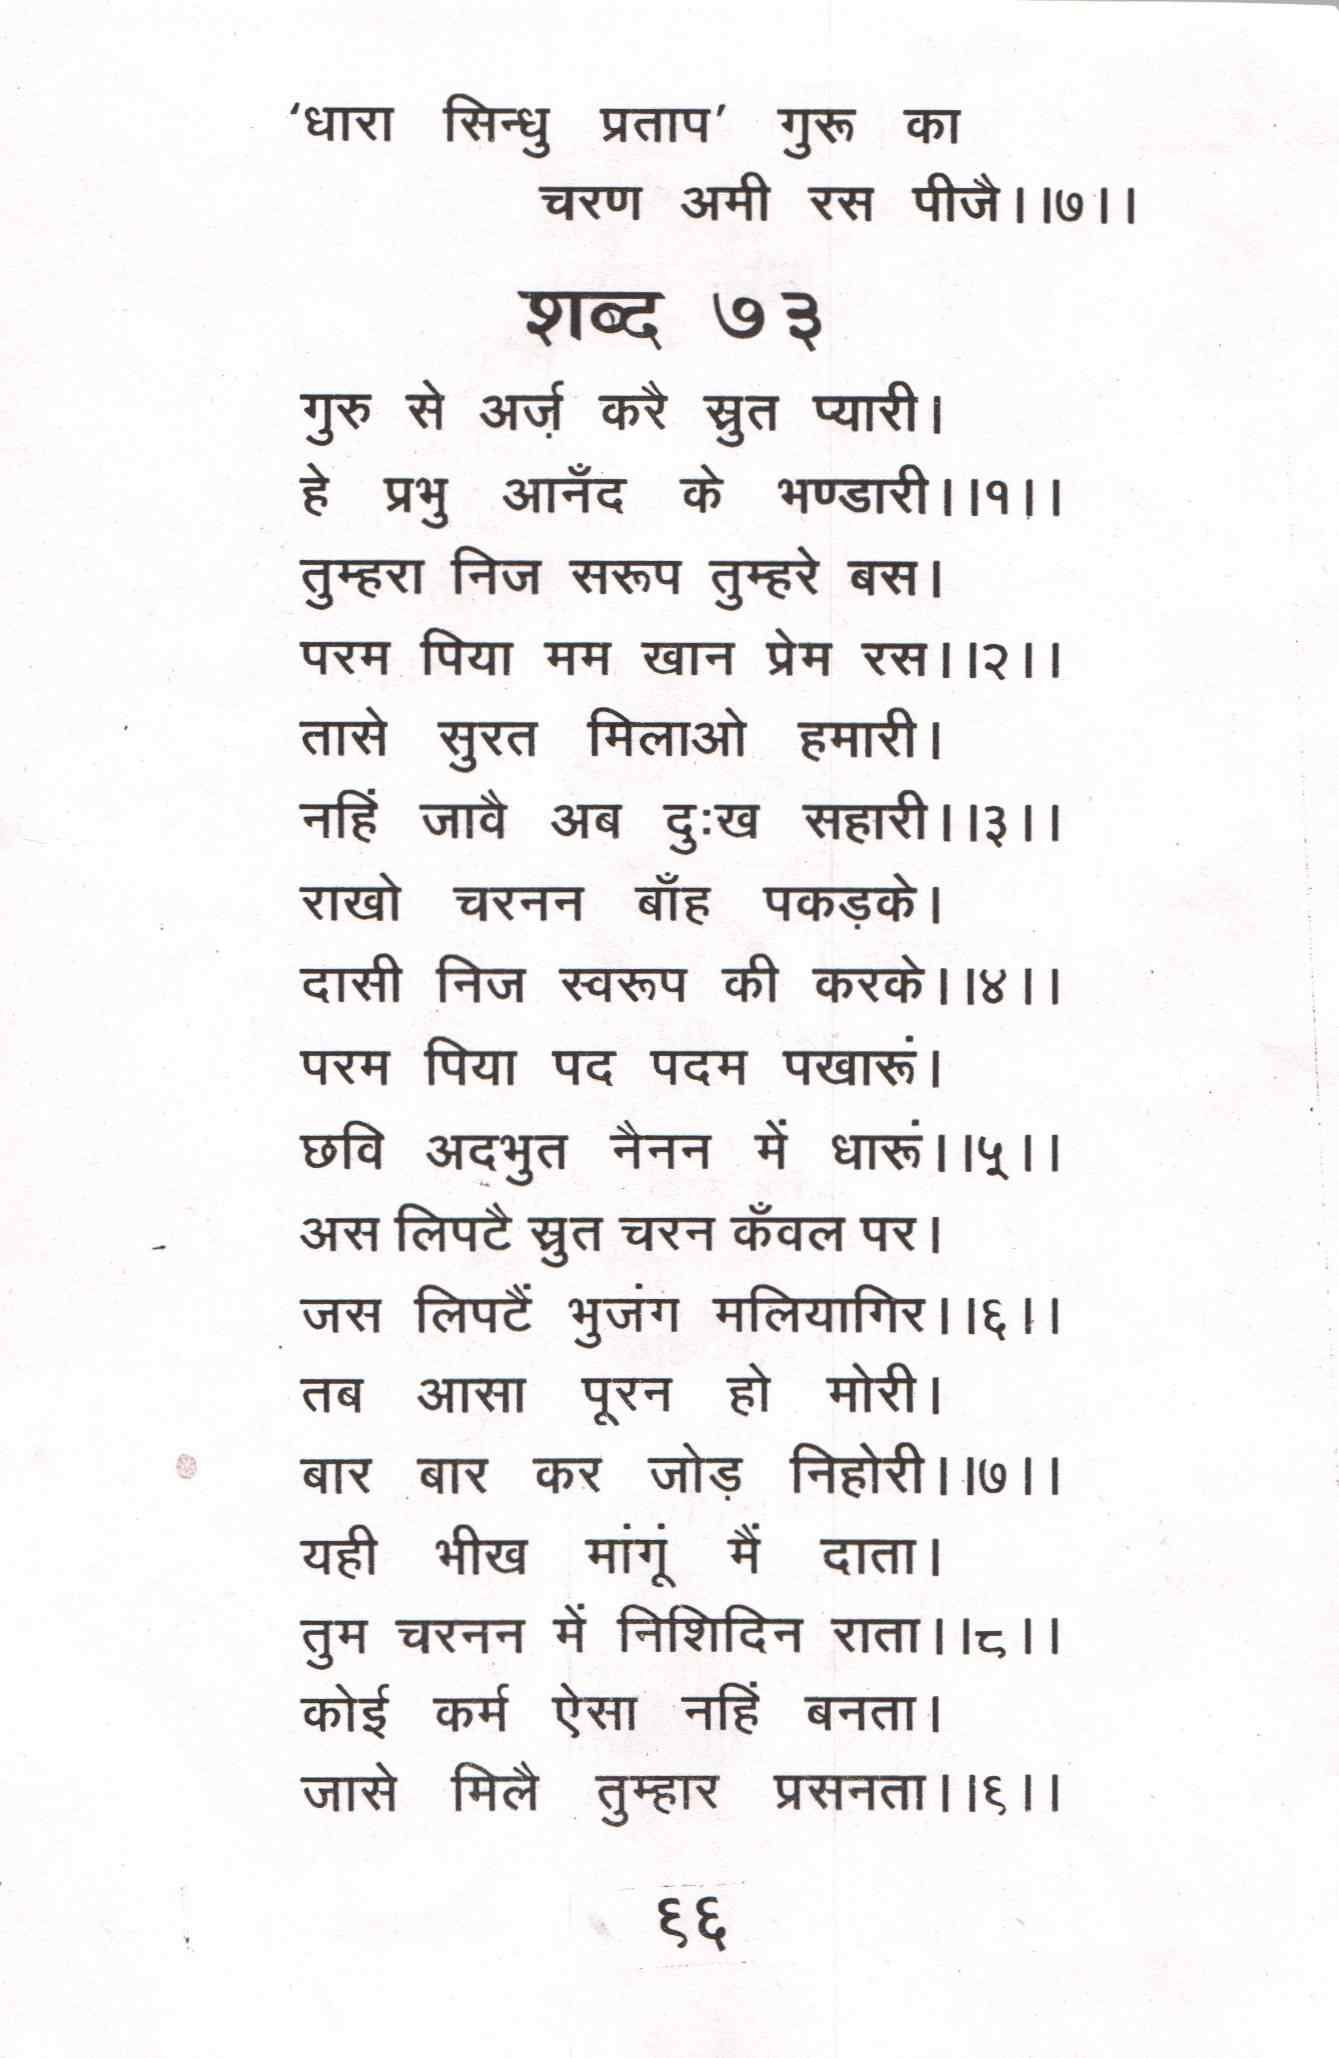 ‘धारा सिन्धु प्रताप’ गुरू का
चरण अमी रस पीजै।।७।।
शब्द ७३
गुरु से अर्ज़ करै स्रुत प्यारी।
हे प्रभु आनँद के भण्डारी।।१।।
तुम्हरा निज सरूप तुम्हरे बस।
परम पिया मम खान प्रेम रस।।२।।
तासे सुरत मिलाओ हमारी।
नहिं जावै अब दुःख सहारी।।३।।
राखो चरनन बाँह पकड़के।
दासी निज स्वरूप की करके।।४।।
परम पिया पद पदम पखारूं।
छवि अदभुत नैनन में धारूं।।५।।
अस लिपटै स्रुत चरन कँवल पर।
जस लिपटैं भुजंग मलियागिर।।६।।
तब आसा पूरन हो मोरी।
बार बार कर जोड़ निहोरी।।७।।
यही भीख मांगूं मैं दाता।
तुम चरनन में निशिदिन राता।।८।।
कोई कर्म ऐसा नहिं बनता।
जासे मिलै तुम्हार प्रसनता।।९।।
९६